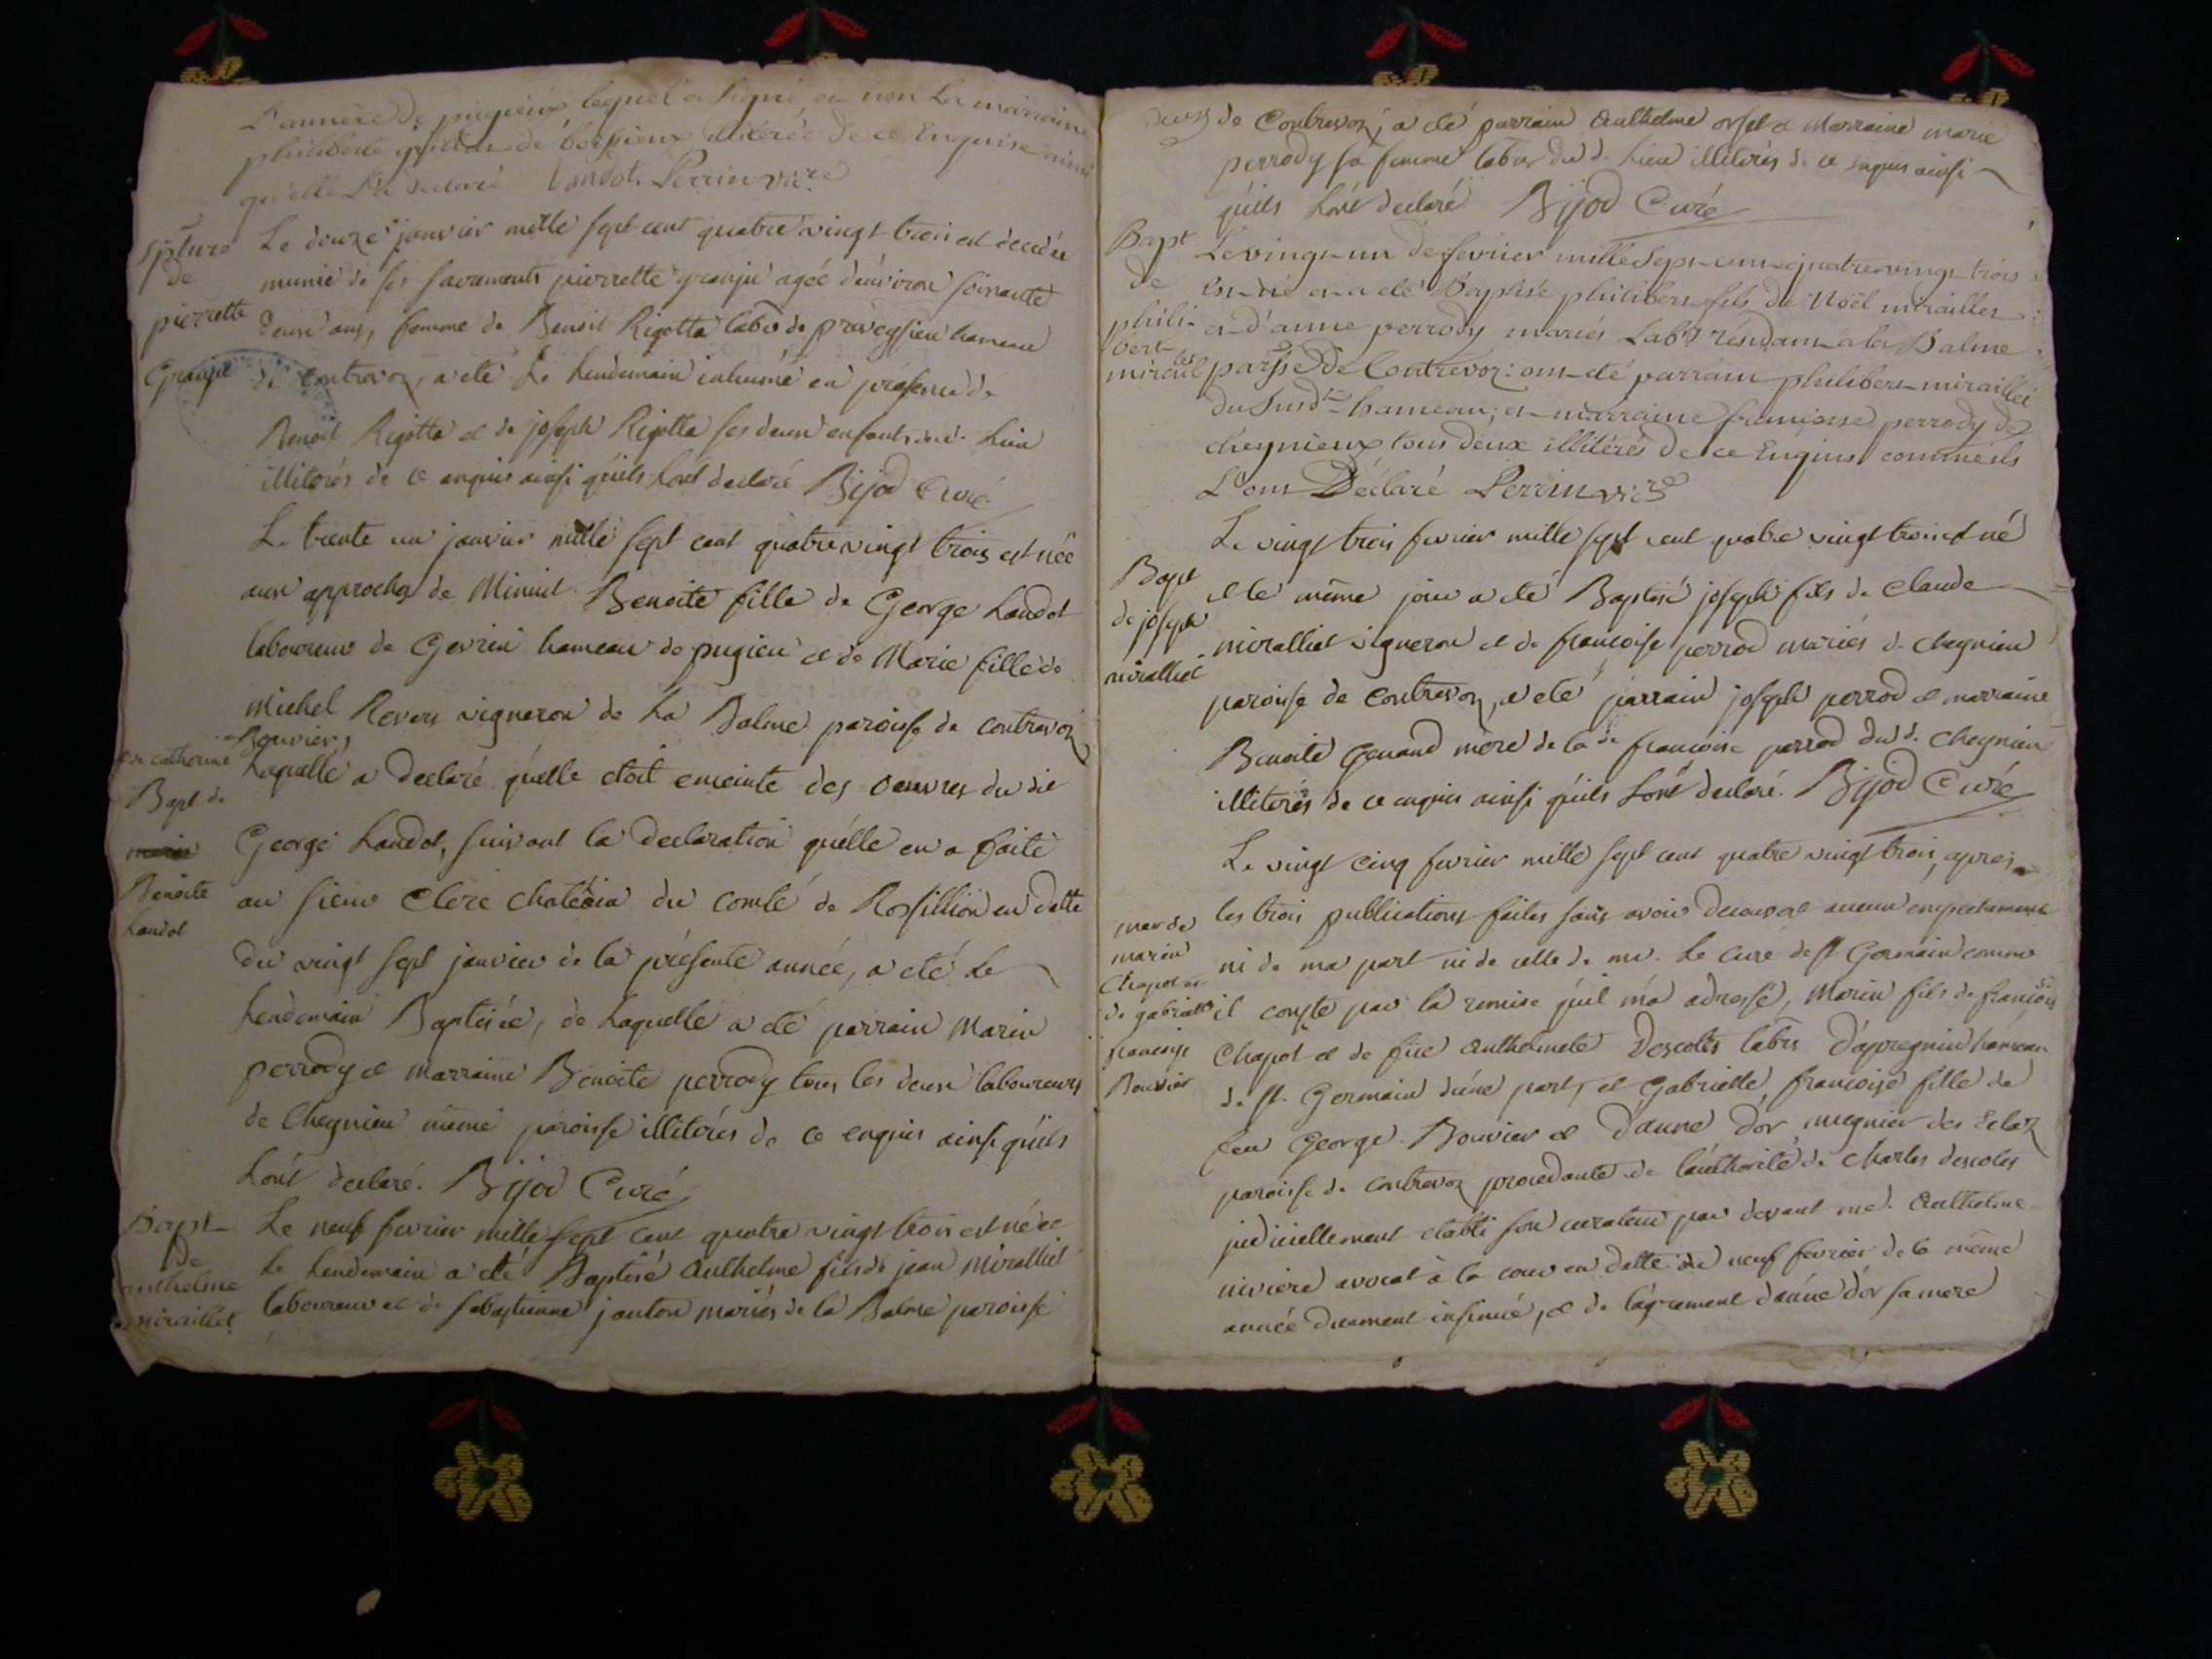 L'année de pugieux lequel a signé, et non la marraine
philiberte de illiterée de ce Enquise ainsi
qu'elle L'a declaré Landot. Perrin vic.re
Spture
de
pierrette
Granjé
Le douze janvier mille sept cent quatre vingt trois est decedée
munie de ses sacrements pierrette granju agée d'environ soixante
deux ans, femme de Benoit Rigotta labr de preveyssieu hameau
de contrevoz, a eté Le Lendemain inhumé en présence de
Benoit Rigotta et de joseph Rigotta ses deux enfants dud. Lieu
illiterés de ce enquis ainsi qu'ils L'ont declaré Bijod Curé
Le trente un janvier mille sept cent quatre vingt trois est née
aux approches de Minuit Benoite fille de George Landot
laboureur de Gevrin hameau de pugieu et de Marie fille de
michel Revers vigneron de La Balme paroisse de contrevoz
et de catherine Bouvier,
Laquelle a declaré qu'elle etoit enceinte des oeuvres du dit
Bapt de
Benoite
Landot
George Landot, suivant la declaration qu'elle en a faite
au sieur Clerc chatelain du comté de Rossillion en datte
du vingt sept janvier de la présente année, a eté Le
Lendemain Baptisée, de Laquelle a eté parrain Marin
perrody et marraine Benoite perrody tous les deux laboureurs
de Cheynieu même paroisse illiterés de ce enquis ainsi qu'ils
L'ont declaré. Bijod Curé
Bapt
De
anthelme
miraillet
Le neuf fevrier mille sept cent quatre vingt trois est né et
Le Lendemain a eté Baptisé Anthelme fils de jean Miralliet
laboureur et de sebastienne janton mariés de la Balme paroisse
de Contrevoz, a eté parrain Anthelme orset et Marraine marie
perrody sa femme labrs dud. Lieu illiterés de ce enquis ainsi
qu'ils L'ont declaré Bijod Curé
Bapt
De
phili-
bert
miraillet
Le vingt-un de fevrier mille Sept-cent-quatre-vingt trois
Est-né et a eté Baptisé philibert fils de Noël mirailles
et d'anne perrody mariés Labrs résidants à la Balme
parsse De Contrevoz: ont eté parrain philibert miraillet
du Susdit hameau; et marraine francoise perrody de
cheynieux tous deux illitérés De ce Enquis comme ils
L'ont Déclaré Perrin vicre
Bapt
de joseph
miralliet
Le vingt trois fevrier mille sept cent quatre vingt trois est né
et le même jour a eté Baptisé joseph fils de Claude
miralliet vigneron et de francoise perrod mariés de cheynieu
paroisse de contrevoz, a eté parrain joseph perrod et marraine
Benoite Genand mère de la de francoise perrod dud. cheynieu
illiterés de ce enquis ainsi qu'ils L'ont declaré. Bijod Curé
mar de
marin
Chapot et
de gabrielle
francoise
Bouvier
Le vingt cinq fevrier mille sept cent quatre vingt trois, apres
les trois publications faites sans avoir decouvert aucun empechement
ni de ma part ni de celle de mr. Le Curé de st Germain comme
il conste par la remise qu'il m'a adressé, Marin fils de francois
Chapot et de fue Anthelmete Descotes labrs D'apregnin hameau
de st. Germain d'une part, et Gabrielle francoise fille de
feu George Bouvier et D'anne D'or megnier des Eclaz
paroisse de contrevoz procedante de l'authorité de Charles descotes
judiciellement etabli son curateur par devant me. Anthelme
niviere avocat à la cour en datte du neuf fevrier de la même
année duement insinué, et de l'agrement d'anne d'or sa mere